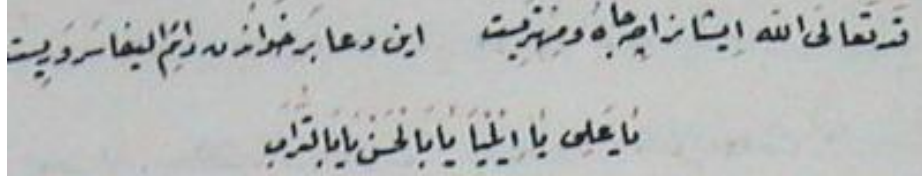 قد تعالی الله ایشانرا چه جاه و مهتریست این دعا بر خواندن دائم الیفا سرور یست
یا علی یا ایلیا یا بالحسن یا بالتراب